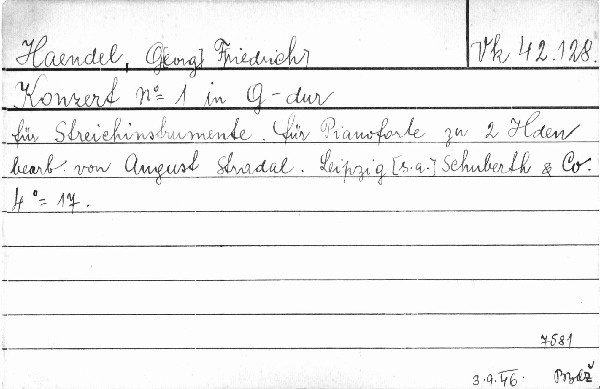 Haendel, G[eorg] Friedrich
Vk 42.128.
Konzert No= 1 in G-dur
für Streichinstrumente. Für Pianoforte zu 2 Hden
bearb. von August Stradal. Leipzig [s.a.] Schuberth & Co.
4°= 17.
7581
3.9.46.